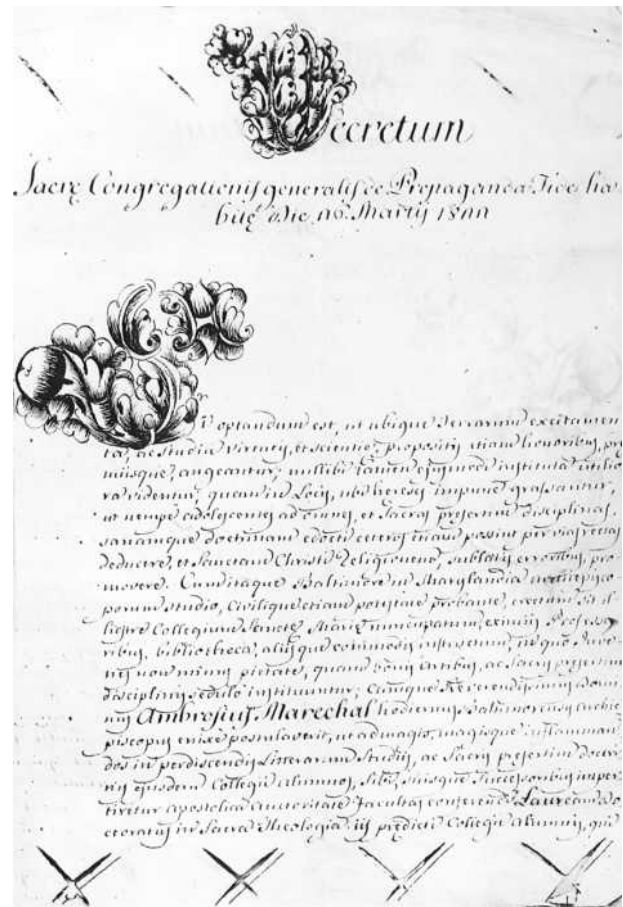 Decretum
Sacrę Congregationis generalis de Propaganda Fide ha
bitę die Martij
Si optandum est, ut ubique terrarum excitamen
ta, ac studia virtutis, et scientię, propositis etiam honoribus, prę
miisque, augeantur; nullibi tamen ejusmodi instituta utilio
ra videntur, quam in Locis, ubi hereses impune grassantur,
ut nempe adolescentes ad omnes, et Sacras pręsertim disciplinas,
sanamque doctrinam edocti ceteros etiam possint per vias rectas
deducere, et Sanctam Christi Religionem, sublatis erroribus, pro
movere. Cum itaque Baltimorę in Marylandia Archiepisco
porum studio, Civilique etiam potestate probante, erectum sit il
lustre Collegium Sanctę Marię nuncupatum, eximiis Professo
ribus, bibliotheca, aliisque commodis instructum, in quo Juve
nes non minus pietate, quam bonis artibus, ac Sacris pręsertim
disciplinis sedulo instituuntur; Cumque Reverendissimus Domi
nus Ambrosius Marechal hodiernus Baltimorensis Archie
piscopus enixe postulaverit, ut ad magis, magisque inflamman
dos in perdiscendis Litterarum Studiis, ac Sacris pręsertim doctri
nis ejusdem Collegii Alumnos, Sibi, Suisque Successoribus imper
tiretur Apostolica Auctoritate facultas conferendi Lauream Do
ctoratus in Sacra Theologia iis prędicti Collegii Alumnis, qui